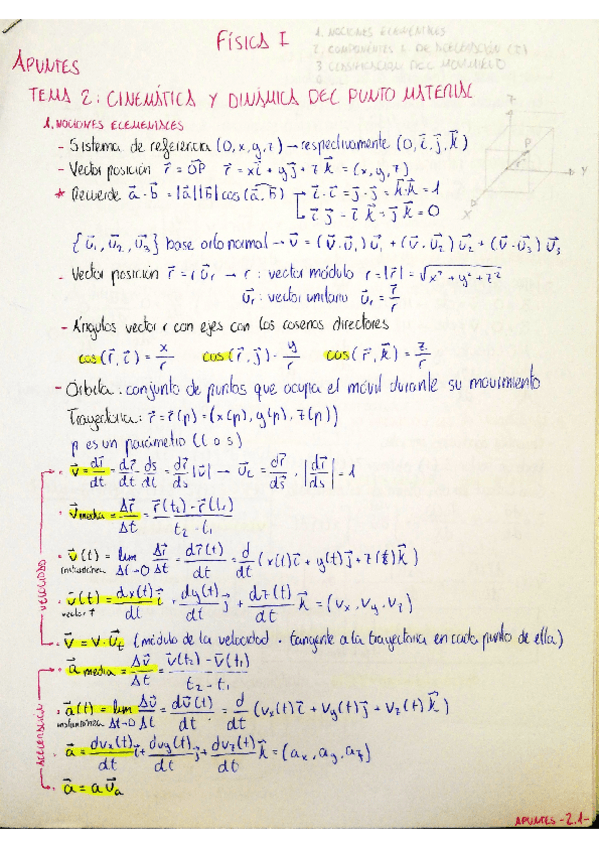 FÍSICA I
1. NOCIONES ELEMENTALES
2. COMPONENTES DE ACELERACIÓN (2)
3 CLASIFICACIÓN DEL MOVIMIENTO
APUNTES
TEMA 2: CINEMÁTICA Y DINÁMICA DEL PUNTO MATERIAL
1. NOCIONES ELEMENTALES
- Sistema de referencia (O, x, y, z) → respectivamente (O, i⃗, j⃗, k⃗)
- Vector posición r⃗ = OP⃗ r⃗ = xi⃗ + yj⃗ + zk⃗ = (x, y, z)
* Recuerde a⃗ · b⃗ = |a⃗||b⃗| cos(a⃗, b⃗) → i⃗·i⃗ = j⃗·j⃗ = k⃗·k⃗ = 1
→ i⃗ j⃗ = i⃗ k⃗ = j⃗ k⃗ = 0
{u⃗₁, u⃗₂, u⃗₃} base ortonormal → v⃗ = (v⃗·u⃗₁)u⃗₁ + (v⃗·u⃗₂)u⃗₂ + (v⃗·u⃗₃)u⃗₃
- Vector posición r⃗ = r u⃗r → r : vector módulo r = |r⃗| = √(x² + y² + z²)
u⃗r : vector unitario u⃗r = r⃗/r
- Ángulos vector r con ejes con los cosenos directores
cos(r⃗, i⃗) = x/r cos(r⃗, j⃗) = y/r cos(r⃗, k⃗) = z/r
- Órbita : conjunto de puntos que ocupa el móvil durante su movimiento
Trayectoria : r⃗ = r⃗(p) = (x(p), y(p), z(p))
p es un parámetro (t o s)
VELOCIDAD
· v⃗ = dr⃗/dt = dr⃗/dt · ds/dt = dr⃗/ds |v⃗| → u⃗t = dr⃗/ds, |dr⃗/ds| = 1
· v⃗media = Δr⃗/Δt = (r⃗(t₂) - r⃗(t₁))/(t₂ - t₁)
· v⃗(t) instantánea = lim Δt→0 Δr⃗/Δt = dr⃗(t)/dt = d/dt (x(t)i⃗ + y(t)j⃗ + z(t)k⃗)
· v⃗(t) = dx(t)/dt i⃗ + dy(t)/dt j⃗ + dz(t)/dt k⃗ = (vx, vy, vz)
· v⃗ = v · u⃗t (módulo de la velocidad · tangente a la trayectoria en cada punto de ella)
ACELERACIÓN
· a⃗ media = Δv⃗/Δt = (v⃗(t₂) - v⃗(t₁))/(t₂ - t₁)
· a⃗(t) instantánea = lim Δt→0 Δv⃗/Δt = dv⃗(t)/dt = d/dt (vx(t)i⃗ + vy(t)j⃗ + vz(t)k⃗)
· a⃗ = dvx(t)/dt i⃗ + dvy(t)/dt j⃗ + dvz(t)/dt k⃗ = (ax, ay, az)
· a⃗ = a u⃗a
APUNTES -2.1-